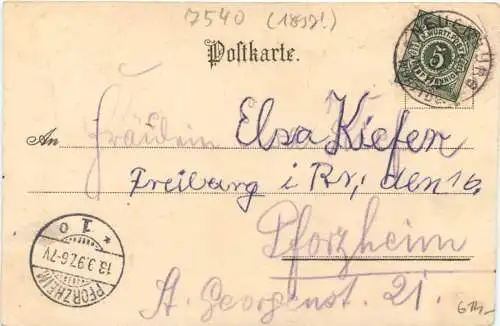 7540 (1897!)
Postkarte.
NEUENBÜRG
K. WÜRTT. POST
5
FÜNF PFENNIG
An Fräulein Elsa Kiefer
Freiburg i Br, den 16.
Pforzheim
* 1 o
13.3.97.6-7V
PFORZHEIM
St. Georgenst. 21.